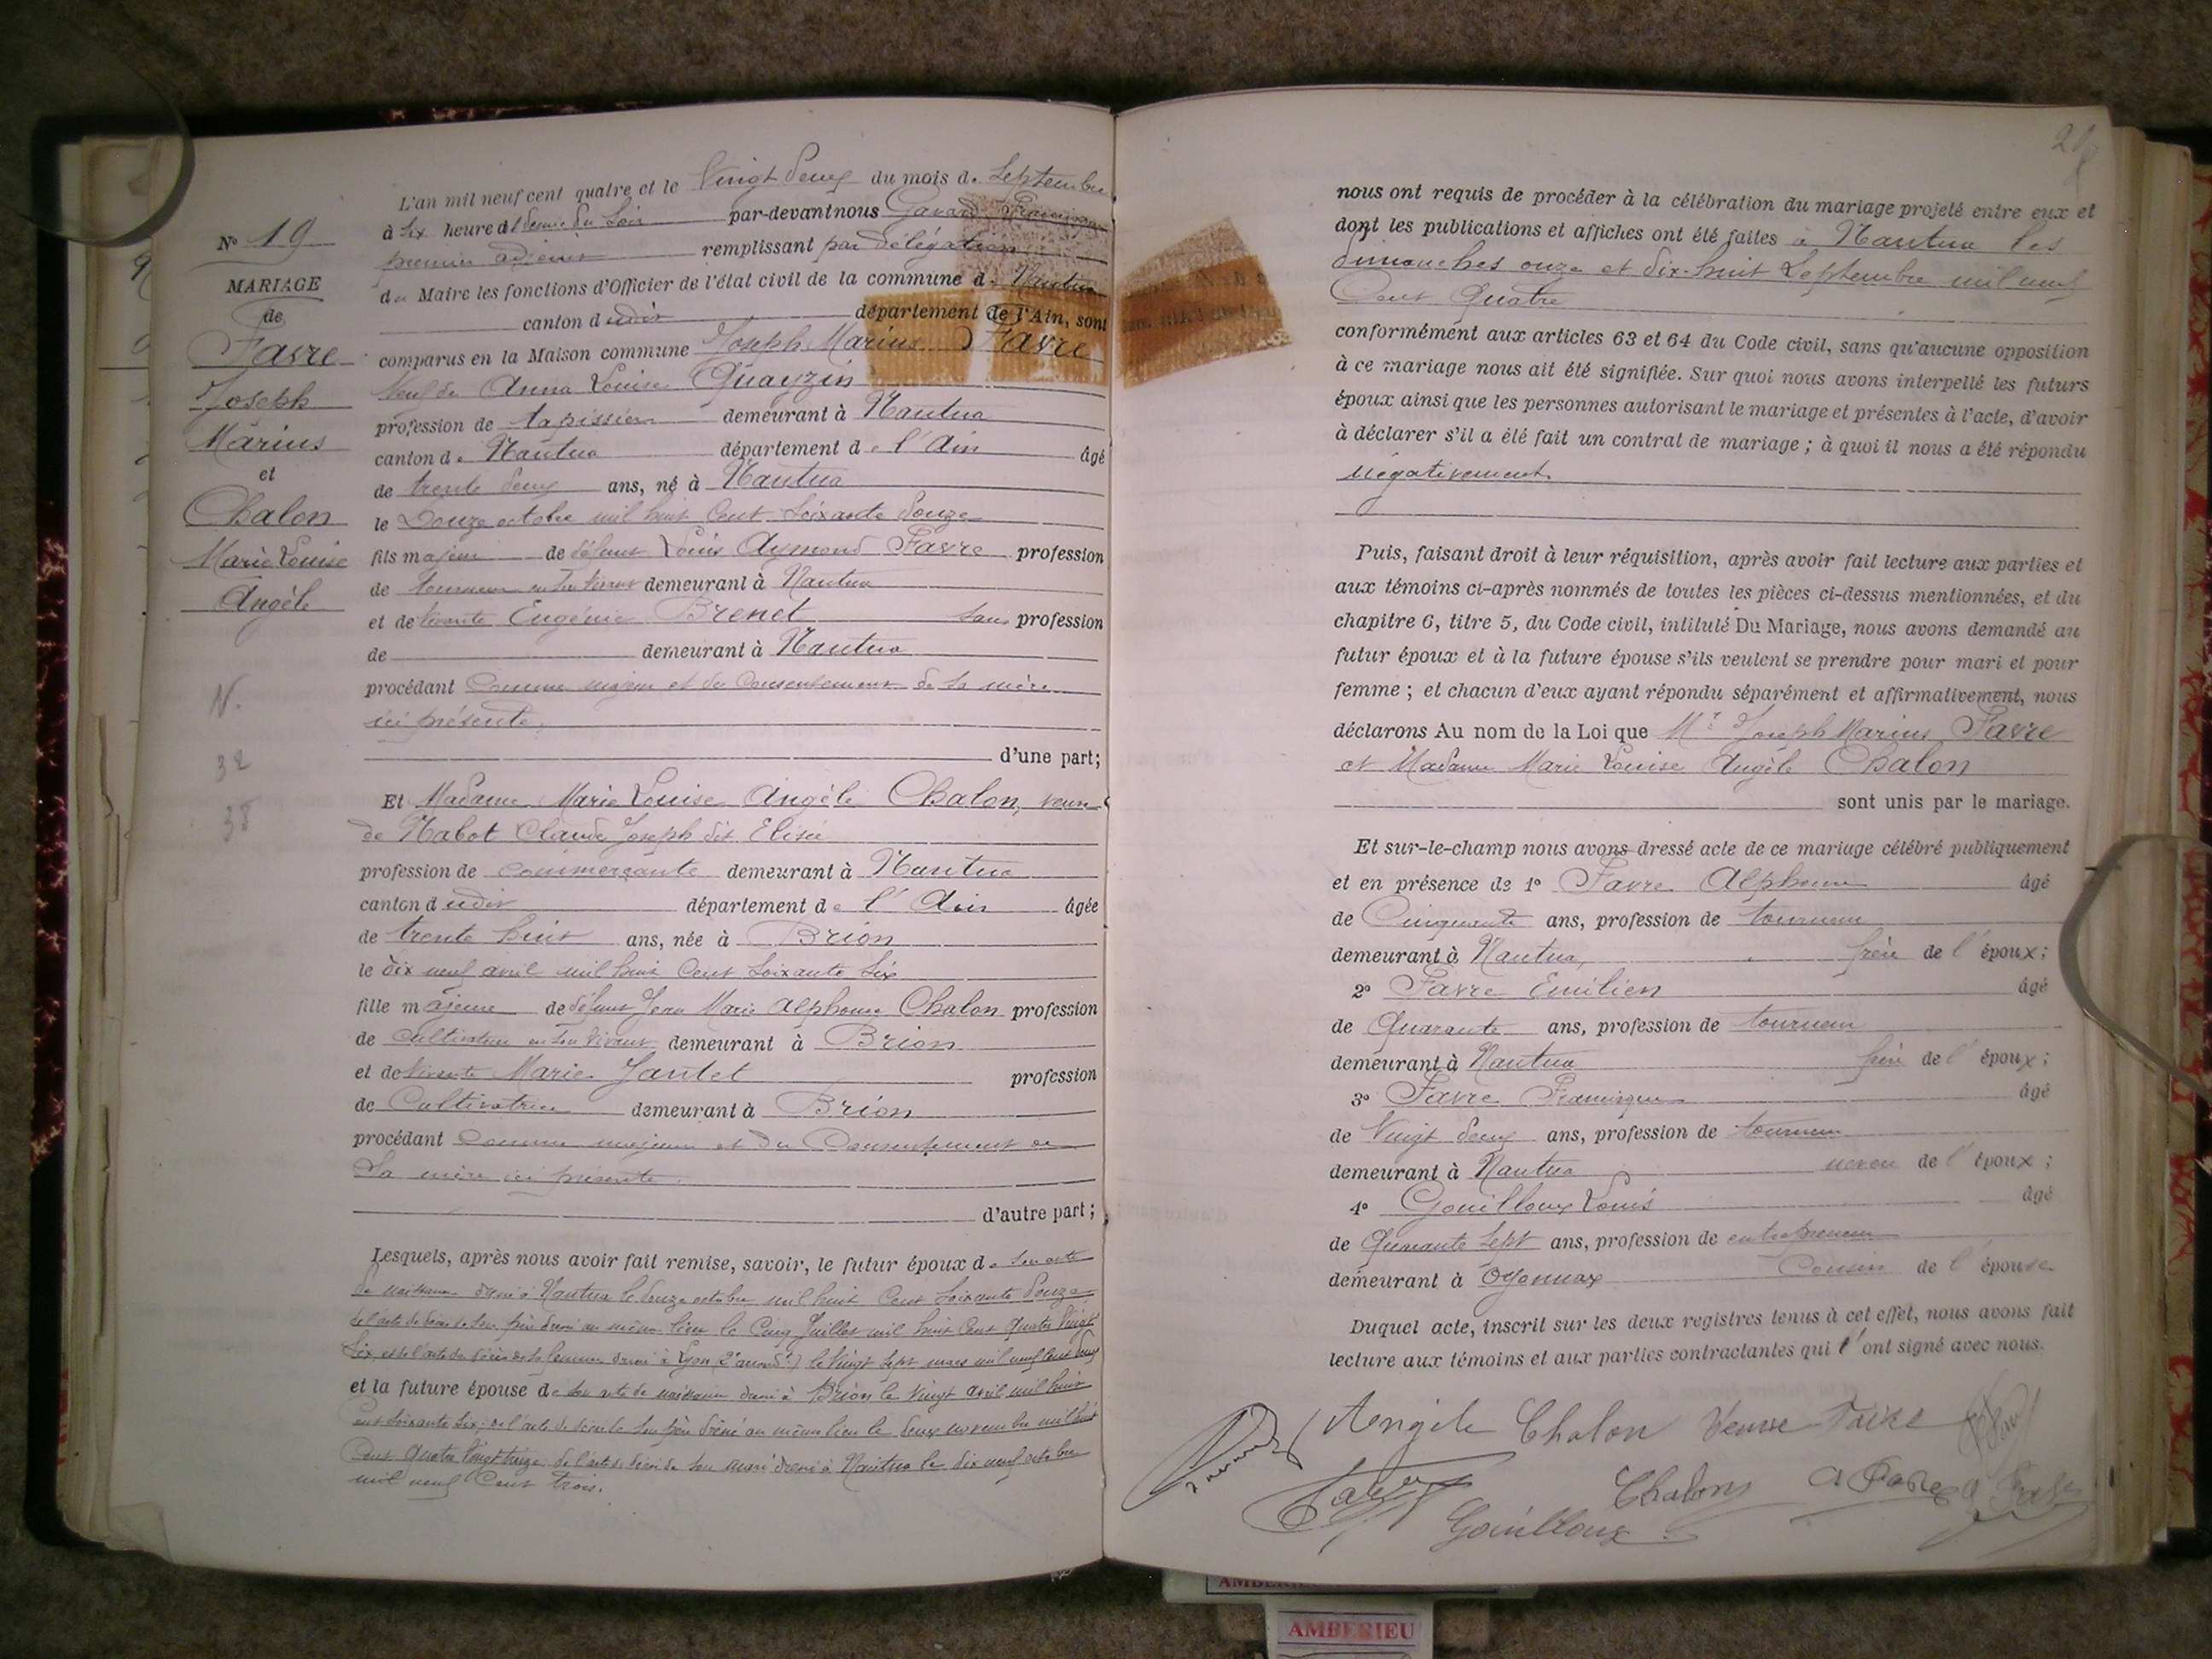 N° 19
MARIAGE
de
Favre
Joseph
Marius
et
Chalon
Marie Louise
Angèle
N.
32
38
L'an mil neuf cent quatre et le Vingt deux du mois de Septembre
à Six heures et demie du Soir par-devant nous Gavard Francisque
premier adjoint remplissant par délégation
du Maire les fonctions d'Officier de l'état civil de la commune de Nantua
canton dudit département de l'Ain, sont
comparus en la Maison commune Joseph Marius Favre
Veuf de Anna Louise Quayzin
profession de tapissier demeurant à Nantua
canton de Nantua département de l'Ain âgé
de trente deux ans, né à Nantua
le Douze octobre mil huit Cent Soixante douze
fils majeur de défunt Louis Aymond Favre profession
de tourneur en son vivant demeurant à Nantua
et de vivante Eugénie Brenet Sans profession
de demeurant à Nantua
procédant Comme majeur et du Consentement de Sa mère
ici présente.
d'une part;
Et Madame Marie Louise Angèle Chalon, veuve
de Nabot Claude Joseph dit Elisée
profession de commerçante demeurant à Nantua
canton dudit département de l'Ain âgée
de trente huit ans, née à Brion
le dix neuf avril mil huit Cent Soixante Six
fille majeure de défunt Jean Marie Alphonse Chalon profession
de Cultivateur en son vivant demeurant à Brion
et de vivante Marie Jantet profession
de Cultivatrice demeurant à Brion
procédant Comme majeure et du Consentement de
Sa mère ici présente.
d'autre part;
Lesquels, après nous avoir fait remise, savoir, le futur époux de Son acte
de naissance dressé à Nantua le douze octobre mil huit Cent Soixante Douze
de l'acte de décès de Son père dressé au même lieu le Cinq Juillet mil huit Cent Quatre Vingt
Six et de l'acte de décès de Sa femme dressé à Lyon (2e arrondt) le Vingt Sept mars mil neuf Cent
et la future épouse de Son acte de naissance dressé à Brion le Vingt avril mil huit
cent Soixante Six; de l'acte de décès de Son père dressé au même lieu le deux novembre mil huit
Cent Quatre Vingt treize de l'acte de décès de Son mari dressé à Nantua le dix neuf octobre
mil neuf Cent trois.
nous ont requis de procéder à la célébration du mariage projeté entre eux et
dont les publications et affiches ont été faites à Nantua les
dimanches onze et dix-huit Septembre mil neuf
Cent Quatre
conformément aux articles 63 et 64 du Code civil, sans qu'aucune opposition
à ce mariage nous ait été signifiée. Sur quoi nous avons interpellé les futurs
époux ainsi que les personnes autorisant le mariage et présentes à l'acte, d'avoir
à déclarer s'il a été fait un contrat de mariage; à quoi il nous a été répondu
négativement.
Puis, faisant droit à leur réquisition, après avoir fait lecture aux parties et
aux témoins ci-après nommés de toutes les pièces ci-dessus mentionnées, et du
chapitre 6, titre 5, du Code civil, intitulé Du Mariage, nous avons demandé au
futur époux et à la future épouse s'ils veulent se prendre pour mari et pour
femme; et chacun d'eux ayant répondu séparément et affirmativement, nous
déclarons Au nom de la Loi que Mr Joseph Marius Favre
et Madame Marie Louise Angèle Chalon
sont unis par le mariage.
Et sur-le-champ nous avons dressé acte de ce mariage célébré publiquement
et en présence de 1° Favre Alphonse âgé
de Cinquante ans, profession de tourneur
demeurant à Nantua, frère de l'époux;
2° Favre Emilien âgé
de Quarante ans, profession de tourneur
demeurant à Nantua frère de l'époux;
3° Favre Francisque âgé
de Vingt deux ans, profession de tourneur
demeurant à Nantua neveu de l'époux;
4° Gouilloux Louis âgé
de Quarante Sept ans, profession de entrepreneur
demeurant à Oyonnax Cousin de l'épouse
Duquel acte, inscrit sur les deux registres tenus à cet effet, nous avons fait
lecture aux témoins et aux parties contractantes qui l'ont signé avec nous.
Angèle Chalon Veuve Favre
Chalon A Favre
Gouilloux
AMBERIEU